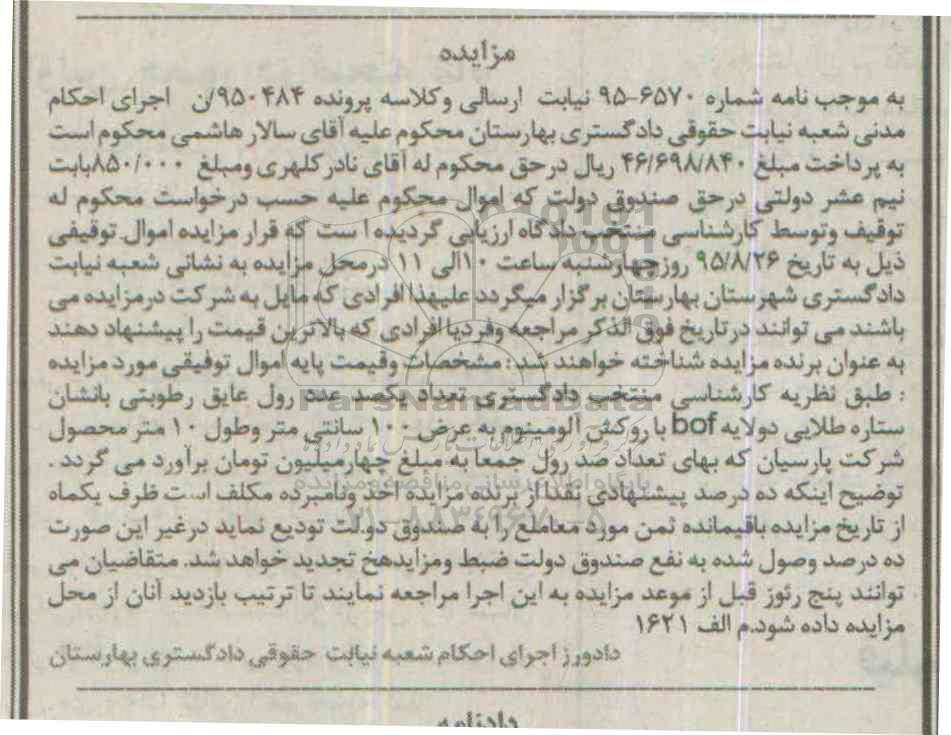 مزایده
به موجب نامه شماره ۶۵۷۰-۹۵ نیابت ارسالی وکلاسه پرونده ۹۵۰۴۸۴/ن اجرای احکام
مدنی شعبه نیابت حقوقی دادگستری بهارستان محکوم علیه آقای سالار هاشمی محکوم است
به پرداخت مبلغ ۴۶/۶۹۸/۸۴۰ ریال درحق محکوم له آقای نادر کلهری ومبلغ ۸۵۰/۰۰۰بابت
نیم عشر دولتی درحق صندوق دولت که اموال محکوم علیه حسب درخواست محکوم له
توقیف وتوسط کارشناسی منتخب دادگاه ارزیابی گردیده ا ست که قرار مزایده اموال توقیفی
ذیل به تاریخ ۹۵/۸/۲۶ روزچهارشنبه ساعت ۱۰الی ۱۱ درمحل مزایده به نشانی شعبه نیابت
دادگستری شهرستان بهارستان برگزار میگردد علیهذا افرادی که مایل به شرکت درمزایده می
باشند می توانند درتاریخ فوق الذکر مراجعه وفردیا افرادی که بالاترین قیمت را پیشنهاد دهند
به عنوان برنده مزایده شناخته خواهند شد : مشخصات وقیمت پایه اموال توفیقی مورد مزایده
: طبق نظریه کارشناسی منتخب دادگستری تعداد یکصد عدد رول عایق رطوبتی بانشان
ستاره طلایی دولایه bof با روکش آلومینوم به عرض ۱۰۰ سانتی متر وطول ۱۰ متر محصول
شرکت پارسیان که بهای تعداد صد رول جمعا به مبلغ چهارمیلیون تومان برآورد می گردد .
توضیح اینکه ده درصد پیشنهادی نقدا از برنده مزایده اخذ ونامبرده مکلف است ظرف یکماه
از تاریخ مزایده باقیمانده ثمن مورد معامله را به صندوق دولت تودیع نماید درغیر این صورت
ده درصد وصول شده به نفع صندوق دولت ضبط ومزایدهخ تجدید خواهد شد. متقاضیان می
توانند پنج رئوز قبل از موعد مزایده به این اجرا مراجعه نمایند تا ترتیب بازدید آنان از محل
مزایده داده شود.م الف ۱۶۲۱
دادورز اجرای احکام شعبه نیابت حقوقی دادگستری بهارستان
دادنامه
ParsNamadData
پایگاه اطلاع رسانی مناقصه و مزایده